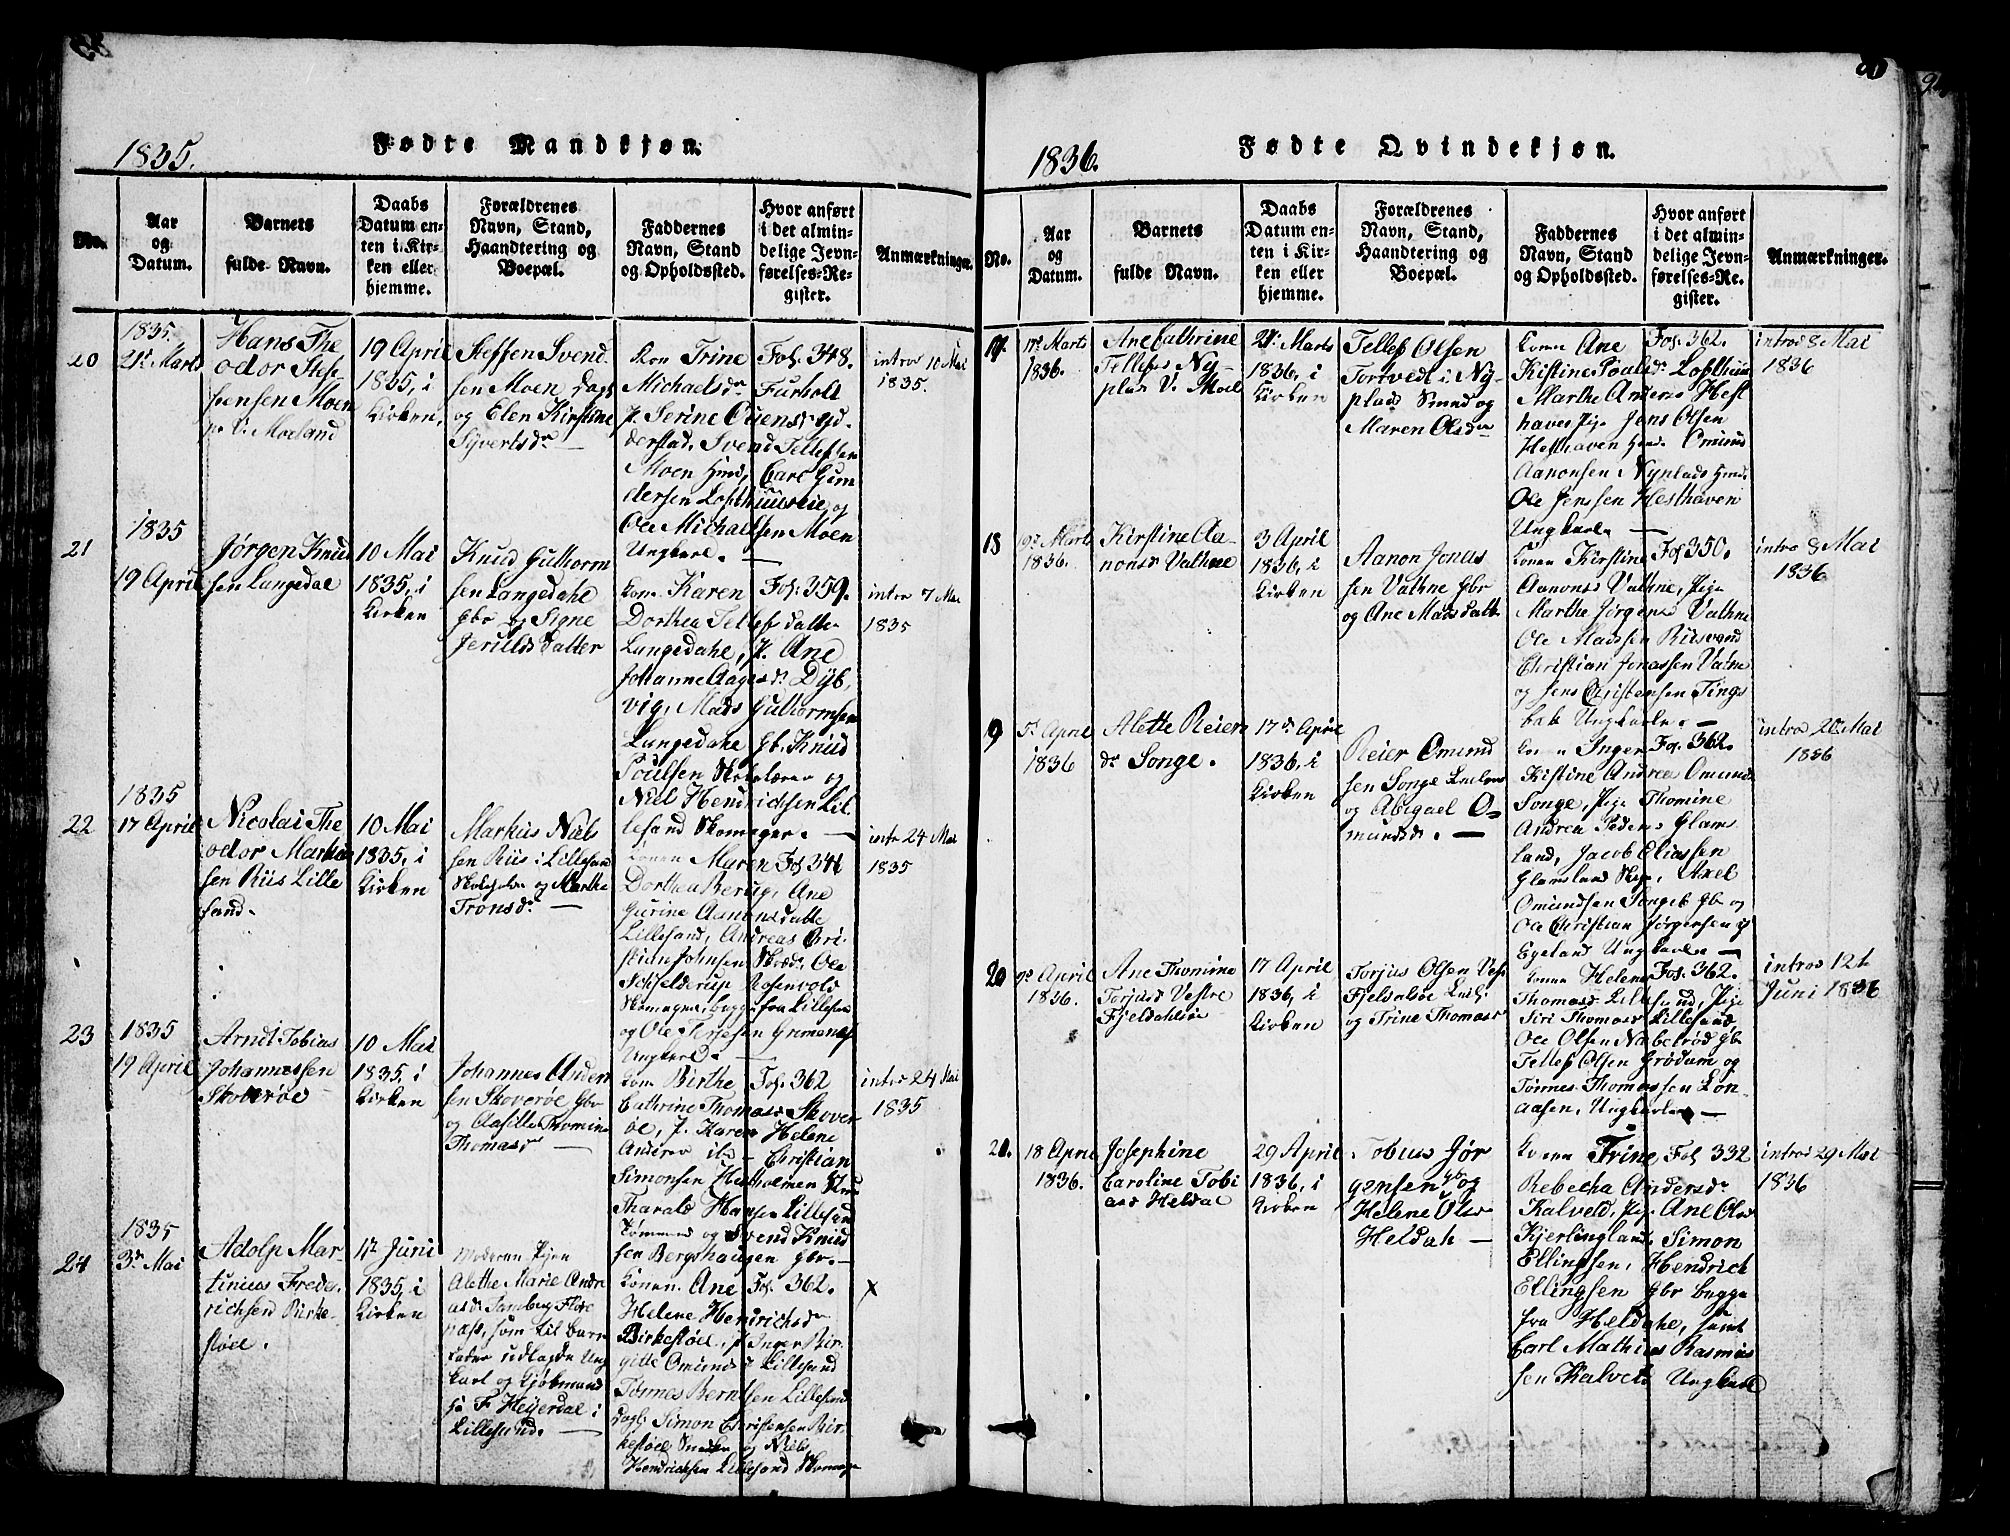 1835.
Fødte Mandkjøn.
No.
Aar
og
Datum.
Barnets
fulde Navn.
Daabs
Datum en-
ten i Kir-
ken eller
hjemme.
Forældrenes
Navn, Stand,
Haandtering og
Boepæl.
Faddernes
Navn, Stand
og Opholdssted.
Hvor anført
i det almin-
delige Jevn-
førelses-Re-
gister.
Anmærkninger.
20
1835.
21de Marts
Hans The
odor Stef
fensen Moen
19 April
1835, i
Kirken.
Steffen Svend
sen Moen
og Elen Kirstine
Syvertsdr
Kon Trine
Michaelsdr
Ole Michaelsen Moen
Ungkarl.
Fol. 348.
intro 10 Mai
1835.
21
1835
19 April
Jørgen Knud
sen Langedal
10 Mai
1835, i
Kirken
Knud Guthorm
sen Langedahl
Gbr og Signe
Kon. Karen
Dorthea Tellefsdatte
Langedahl, P. Ane
Johanne Aagesdr Dyb
vig, Mads Guthormsen
Langedahl Gb. Knud
Poulsen Skolelærer og
Niel Hendrichsen Lil
lesand Skomager.
Fol. 359.
intro 7 Mai
1835
22
1835
17 April
Nicolai The
odor Markus
sen Riis Lille
sand.
10 Mai
1835, i
Kirken
Markus Niels
sen Riis i Lillesand
og Marthe
Tronsdr
Konen Maren
Dorthea Berug, Ane
Gurine Aanonsdatte
Lillesand, Andreas Chri
stian Johnsen
Schjelderup Rosenvold
fra Lillesand
Ungkarl.
intro 24 Mai
1835
23
1835
19 April
Arndt Tobias
Johannessen
Skoverøe
10 Mai
1835, i
Kirken
Johannes Anders
sen Skoverøe Gbr
og Aasille Thomine
Thomasdr
Kon. Birthe
Cathrine Thomasdr Skover
øe, P. Karen Helene
Christian
Tharald Hansen Lillesand
Tømmermd og Svend Knud
sen Bergshaugen Gbr.
Fol. 362
intro 24 Mai
1835
24
1835
3de Mai
Adolp Mar-
tinius Frede-
richsen Birke-
støel.
1ste Juni
1835, i
Kirken
Moderen Pigen
Alethe Marie Andre
næs, som til Barne
fader udlagde Ung
karl og Kjøbmand
F. Heyerdal i
Lillesand.
Konen Ane
Helene Hendrichsdr
Birkestøel, P. Inger Bir
gitte Omunds i Lillesand
Tønnes Berntsen Lillesand
Simon Christensen Bir
kestøel Snedker og Niels
Hendrichsen Lillesand
Fol. 362.
x
1836.
Fødte Qvindekjøn.
No.
Aar
og
Datum.
Barnets
fulde Navn.
Daabs
Datum en-
ten i Kir-
ken eller
hjemme.
Forældrenes
Navn, Stand,
Haandtering og
Boepæl.
Faddernes
Navn, Stand
og Opholdssted.
Hvor anført
i det almin-
delige Jevn-
førelses-Re-
gister.
Anmærkninger.
17.
Marts
1836.
Ane Cathrine
Tellefsdr Ny-
plads V. Moel
Marts
1836, i
Kirken
Tellef Olsen
Tortvedt i Ny
plads Smed og
Maren Olsdr
Konen Ane
Kistine Poulsdr Lofthuus
Marthe Andersdr Hest
haven Pige Jens Olsen
Hesthaven Omund
Aanonsen Nyplads
Ole Jenssen Hesthaven
Ungkarle.
Fol. 362.
intro 8 Mai
1836
18
Marts
1836.
Kirstine Aa-
nonsdr Vathne
3 April
1836, i
Kirken
Aanon Jonas
sen Vathne Gbr
og Ane Madsdatte
Konen Kirstine
Aanonsdr Vathne, Pige
Marthe Jørgensdr Vathne
Ole Madssen
Christian Jonassen Vatne
og Jens Christensen Tings
bek Ungkarle.
Fol 350.
intro 8 Mai
1836
19
5te April
1836
Alette Reier
dr Songe.
17de April
1836, i
Kirken
Reier Omund
sen Songe
og Abigael O-
mundsdr.
Konen Inger
Kistine Andrea Omunds
Songe, Pige Thomine
Andrea Pedersdr Glams
land, Jacob Eliassen
Glamsland, Axel
Omundsen Songe Gbr og
Ole Christian Jørgensen
Egeland Ungkarle.
Fol. 362.
intro 20 Mai
1836
20
9de April
1836.
Ane Thomine
Torjusdr Vestre
Fjeldahlsøe
17 April
1836, i
Kirken
Torjus Olsen Vest
Fjelsalsøe
og Trine Thomasdr
Konen Helene
Thomasdr Lillesand, Pige
Siri Thomasdr Lillesand
Ole Olsen Nabelrød Gbr
Tellef Olsen Grødum og
Tønnes Thomassen Løn-
aasen, Ungkarle
Fol. 362.
intro 12te
Juni 1836
21.
18 April
1836.
Josephine
Caroline Tobi
asdr Heldal
29 April
1836, i
Kirken
Tobias Jør
gensen Gbr og
Helene Olsdr
Heldah
Konen Trine
Rebecha Andersdr
Kalveld, Pige Ane Olsdr
Kjerlingland, Simon
Ellingsen, Hendrich
Ellingsen Gbr begge
fra Heldahl, samt
Carl Mathias Rasmus
sen Kalveld Ungkarle
Fol 332
intro 29 Mai
1836